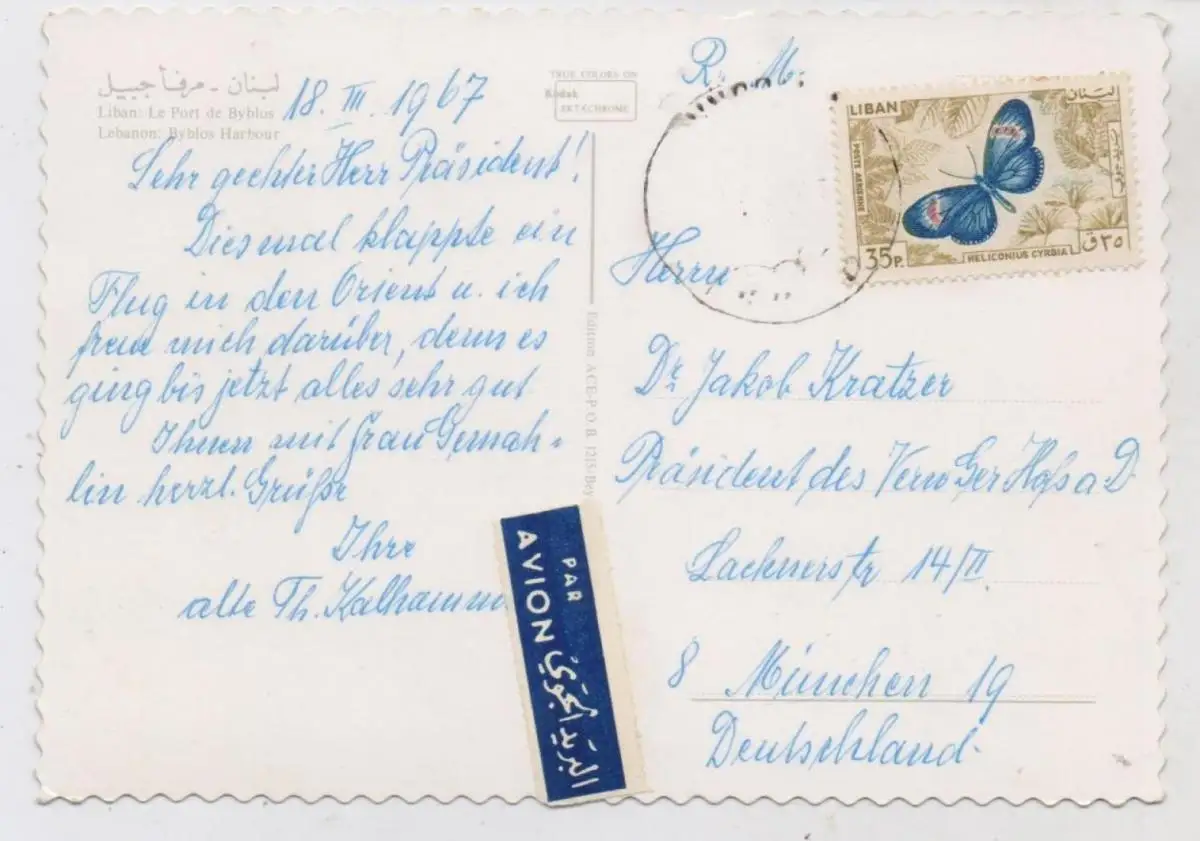 لبنان - مرفأ جبيل
Liban: Le Port de Byblos
Lebanon: Byblos Harbour
18. III. 1967
TRUE COLORS ON
Kodak
EKTACHROME
Sehr geehrter Herr Präsident!
Diesmal klappte ein
Flug in den Orient u. ich
freue mich darüber, denn es
ging bis jetzt alles sehr gut
Ihnen mit Frau Gemah-
lin herzl. Grüße
Ihre
alte Th. Kalhamm
Edition ACE-P.O.B. 1215/Bey
PAR
AVION
البريد الجوي
R. M.
LIBAN
لبنان
POSTE AERIENNE
بريد جوي
35P.
٣٥ ق
HELICONIUS CYRBIA
Herrn
Dr. Jakob Kratzer
Präsident des Verw Ger Hofs a D
Lachnerstr 14/II.
8 München 19
Deutschland.